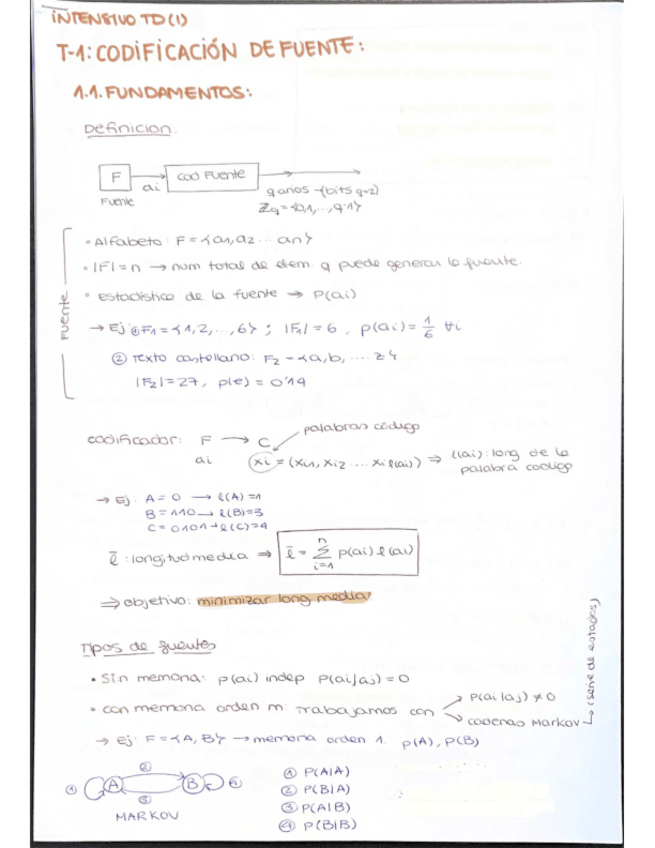 INTENSIVO TD(1)
T-1: CODIFICACIÓN DE FUENTE:
1.1. FUNDAMENTOS:
Definicion:
F
ai
cod Fuente
Fuente
qarios → (bits q=2)
Zq = {0,1,...,q-1}
Fuente
• Alfabeto: F = {a1, a2 ... an}
• |F| = n → num total de elem. q puede generar la fuente.
• estadística de la fuente → P(ai)
→ Ej: ① F1 = {1,2,...,6}; |F1| = 6, p(ai) = 1/6 ∀i
② Texto castellano: F2 = {a,b,.... z}
|F2| = 27, p(e) = 0'14
palabras código
codificador: F → C
ai xi = (xi1, xi2 ... xil(ai)) ⇒ l(ai): long de la
palabra codigo
→ Ej: A = 0 → l(A) = 1
B = 110 → l(B) = 3
C = 0101 → l(C) = 4
l̄: longitud media ⇒ l̄ = Σ i=1 n p(ai) l(ai)
⇒ objetivo: minimizar long media.
Tipos de fuentes
• Sin memoria: p(ai) indep P(ai/aj) = 0
• con memoria orden m: Trabajamos con
P(ai|aj) ≠ 0
cadenas Markov
↳ (serie de estados)
→ Ej: F = {A, B} → memoria orden 1. p(A), P(B)
① A ② ③ B ④
MARKOV
① P(A|A)
② P(B|A)
③ P(A|B)
④ P(B|B)